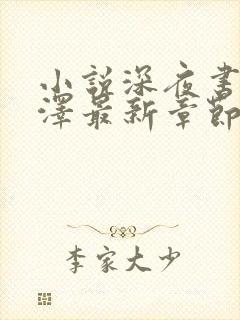 小說深夜書
澤最新章節
李家大少